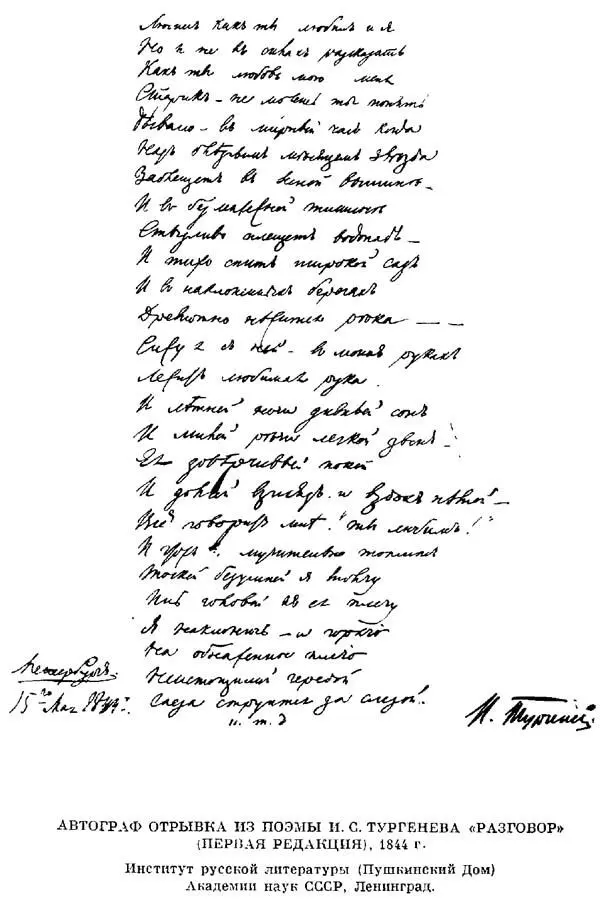 Любилъ какъ ты любилъ и я
Но я не въ силахъ разсказать
Какъ ты любовь мою меня
Старикъ – не можешь ты понять
Бывало – въ мирный часъ когда
Надъ блѣднымъ мѣсяцемъ звѣзда
Заблещетъ въ ясной вышинѣ –
И въ безмятежной тишинѣ
Стыдливо плещетъ водопадъ –
И тихо спитъ широкой садъ
И въ наклоненныхъ берегахъ
Дремотно нѣжится рѣка – –
Сижу я съ ней – въ моихъ рукахъ
Лежитъ любимая рука
И лѣтней ночи дивный сонъ
И милой рѣчи легкой звонъ –
Ея довѣрчивый покой
И долгій взглядъ и вздохъ нѣмой –
Всё говоритъ мнѣ: "ты любимъ!"
И мучительно томимъ
Тоской безумной я молчу
Иль головой къ ея плечу
Я наклонюсь – и горячо
На обнаженное плечо
Неистощимой чередой
Слеза струится за слезой.
и. т. д
Петербургъ.
15го Мая 1844г.
И. Тургеневъ
АВТОГРАФ ОТРЫВКА ИЗ ПОЭМЫ И. С. ТУРГЕНЕВА «РАЗГОВОР»
(ПЕРВАЯ РЕДАКЦИЯ), 1844 г.
Институт русской литературы (Пушкинский Дом)
Академии наук СССР, Ленинград.